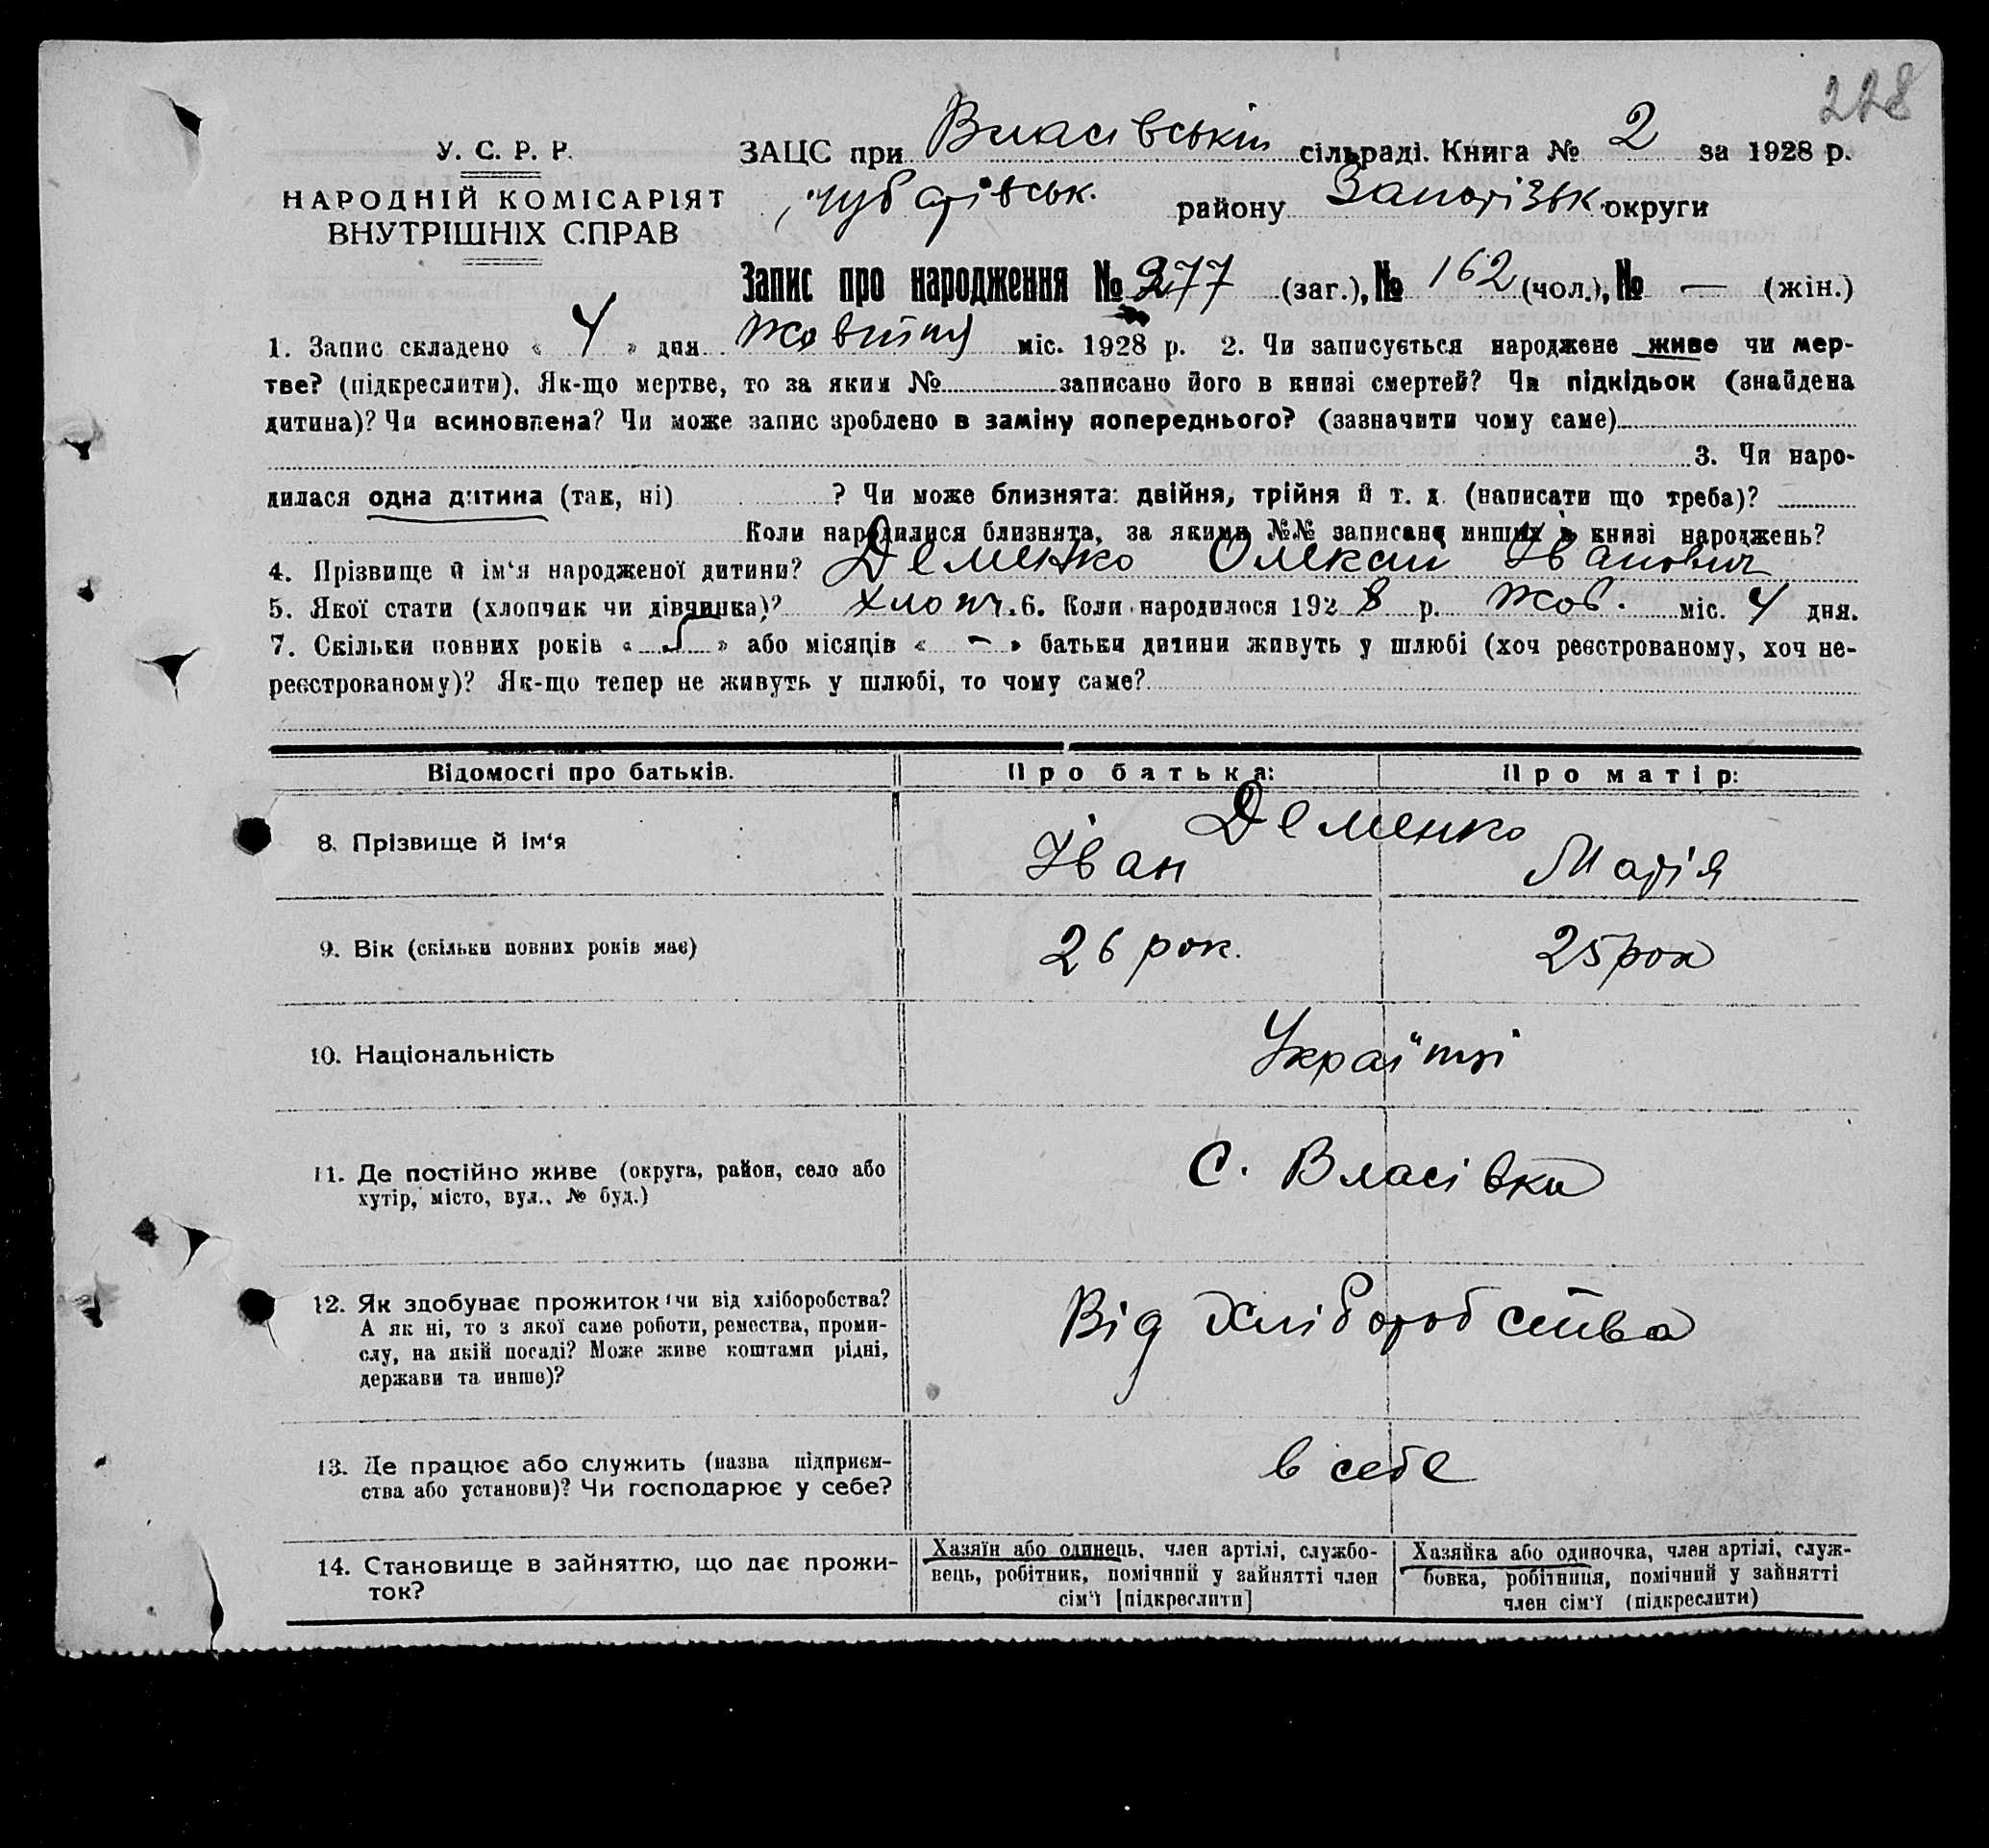 228
У. С. Р. Р.
НАРОДНІЙ КОМІСАРІЯТ
ВНУТРІШНІХ СПРАВ
ЗАЦС при Власівській сільраді. Книга № 2 за 1928 р.
Чубарівськ. району Запорізьк. округи
Запис про народження № 277 (заг.), № 162 (чол.), № — (жін.)
1. Запис складено « 4 » дня Жовтня міс. 1928 р. 2. Чи записується народжене живе чи мер-
тве? (підкреслити). Як-що мертве, то за яким № записано його в книзі смертей? Чи підкідьок (знайдена
дитина)? Чи всиновлена? Чи може запис зроблено в заміну попереднього? (зазначити чому саме)
3. Чи наро-
дилася одна дитина (так, ні) ? Чи може близнята: двійня, трійня й т. д. (написати що треба)?
Коли народилися близнята, за якими №№ записано инших в книзі народжень?
4. Прізвище й ім‘я народженої дитини? Деменко Олексій Іванович
5. Якої стати (хлопчик чи дівчинка)? хлопч. 6. Коли народилося 1928 р. Жов. міс. 4 дня.
7. Скільки повних років « 5 » або місяців « – » батьки дитини живуть у шлюбі (хоч реєстрованому, хоч не-
реєстрованому)? Як-що тепер не живуть у шлюбі, то чому саме?
Відомості про батьків. Про батька: Про матір:
8. Прізвище й ім‘я Деменко
Іван Марія
9. Вік (скільки повних років має) 26 рок. 25 рок
10. Національність Українці
11. Де постійно живе (округа, район, село або
хутір, місто, вул.. № буд.) С. Власівка
12. Як здобуває прожиток чи від хліборобства?
А як ні, то з якої саме роботи, ремества, проми-
слу, на якій посаді? Може живе коштами рідні,
держави та инше)? Від хліборобства
13. Де працює або служить (назва підприєм-
ства або установи)? Чи господарює у себе? в себе
14. Становище в зайняттю, що дає прожи-
ток?
Хазяїн або одинець, член артілі, службо-
вець, робітник, помічний у зайнятті член
сім‘ї [підкреслити]
Хазяйка або одиночка, член артілі, служ-
бовка, робітниця, помічний у зайнятті
член сім‘ї (підкреслити)